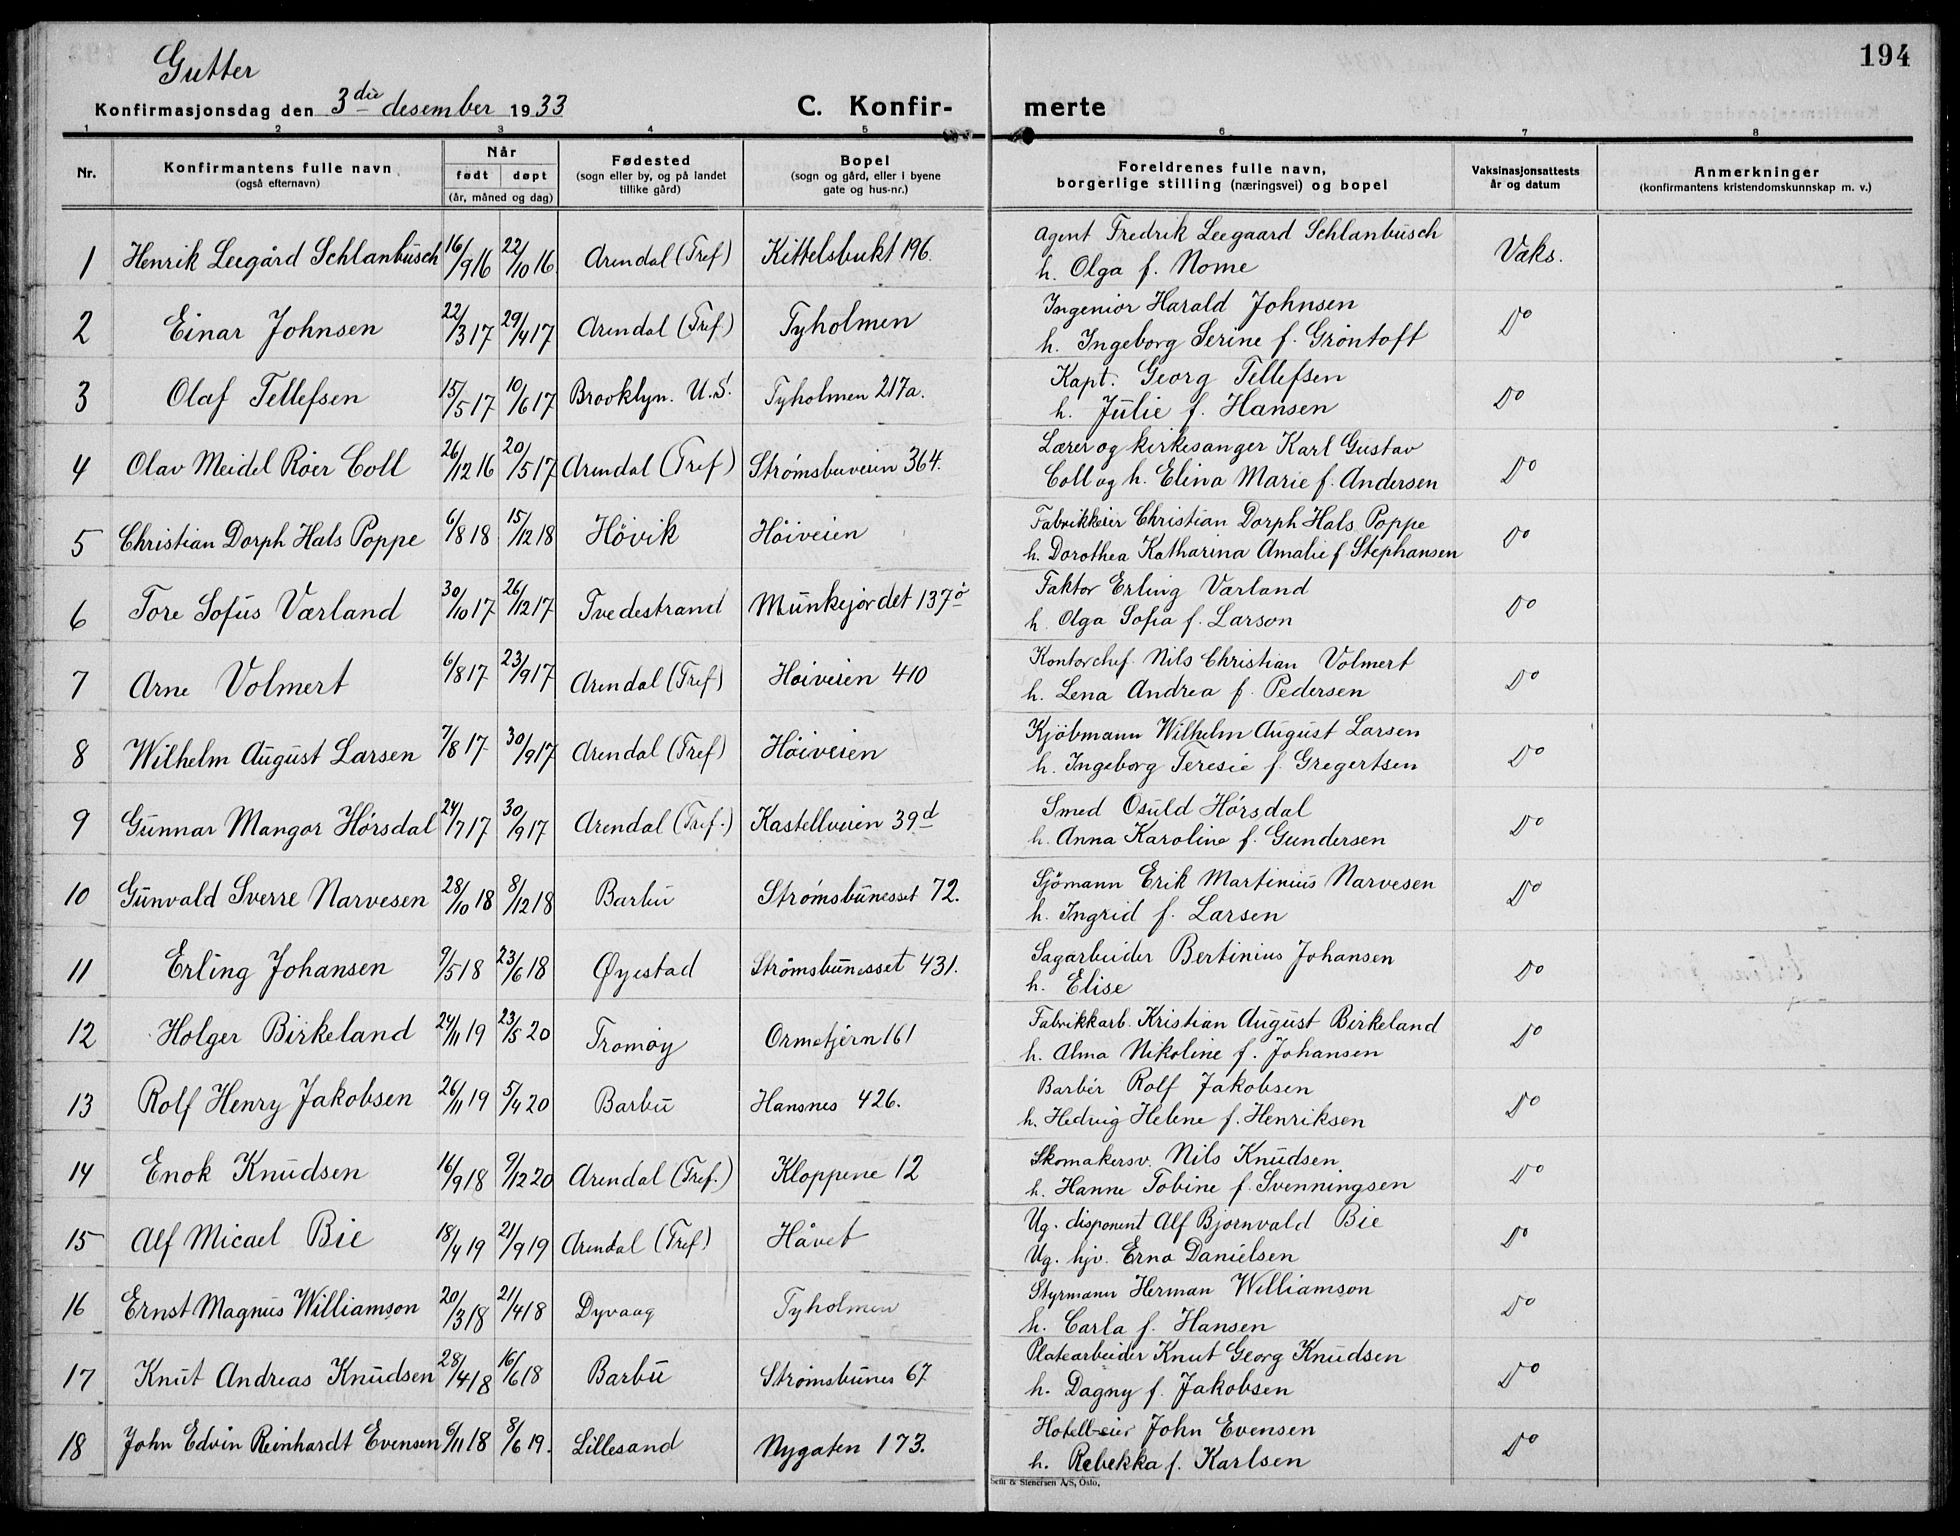 194
Gutter
Konfirmasjonsdag den 3die desember 1933 C. Konfir- merte
1 2 3 4 5 6 7 8
Nr. Konfirmantens fulle navn (også efternavn) Når født døpt (år, måned og dag) Fødested (sogn eller by, og på landet tillike gård) Bopel (sogn og gård, eller i byene gate og hus-nr.) Foreldrenes fulle navn, borgerlige stilling (næringsvei) og bopel Vaksinasjonsattests år og datum Anmerkninger (konfirmantens kristendomskunnskap m. v.)
1 Henrik Leegård Schlanbusch 16/9 16 22/10 16 Arendal (Tref) Kittelsbukt 196. Agent Fredrik Leegaard Schlanbusch
h. Olga f. Nome Vaks.
2 Einar Johnsen 22/3 17 29/4 17 Arendal (Tref.) Tyholmen Ingeniør Harald Johnsen
h. Ingeborg Serine f. Grøntoft Do
3 Olaf Tellefsen 15/5 17 10/6 17 Brooklyn. U.S. Tyholmen 217a. Kapt. Georg Tellefsen
h. Julie f. Hansen Do
4 Olav Meidel Røer Coll 26/12 16 20/5 17 Arendal (Tref) Strømsbuveien 364. Lærer og kirkesanger Karl Gustav
Coll og h. Elina Marie f. Andersen Do
5 Christian Dorph Hals Poppe 6/8 18 15/12 18 Høvik Høiveien Fabrikkeier Christian Dorph Hals Poppe
h. Dorothea Katharina Amalie f Stephansen Do
6 Tore Sofus Værland 30/10 17 26/12 17 Tvedestrand Munkejordet 137ö Faktor Erling Værland
h. Olga Sofia f. Larson Do
7 Arne Volmert 6/8 17 23/9 17 Arendal (Tref) Høiveien 410 Kontorchef. Nils Christian Volmert
h. Lena Andrea f. Pedersen Do
8 Wilhelm August Larsen 7/8 17 30/9 17 Arendal (Tref) Høiveien Kjöbmann Wilhelm August Larsen
h. Ingeborg Teresie f. Gregertsen Do
9 Gunnar Mangor Hørsdal 24/7 17 30/9 17 Arendal (Tref.) Kastellveien 39d Smed Osuld Hørsdal
h. Anna Karoline f. Gundersen Do
10 Gunvald Sverre Narvesen 28/10 18 8/12 18 Barbu Strømsbunesset 72. Sjömann Erik Martinius Narvesen
h. Ingrid f. Larsen Do
11 Erling Johansen 9/5 18 23/6 18 Øyestad Strømsbunesset 431. Sagarbeider Bertinius Johansen
h. Elise Do
12 Holger Birkeland 24/11 19 23/5 20 Tromøy Ormetjern 161 Fabrikkarb. Kristian August Birkeland
h. Alma Nikoline f. Johansen Do
13 Rolf Henry Jakobsen 26/11 19 5/4 20 Barbu Hansnes 426. Barbér Rolf Jakobsen
h. Hedvig Helene f. Henriksen Do
14 Enok Knudsen 16/9 18 9/12 20 Arendal (Tref.) Kloppene 12 Skomakersv. Nils Knudsen
h. Hanne Tobine f. Svenningsen Do
15 Alf Micael Bie 18/4 19 21/9 19 Arendal (Tref) Håvet Ug. disponent Alf Bjørnvald Bie
Ug. hjv. Erna Danielsen Do
16 Ernst Magnus Williamson 20/3 18 21/4 18 Dyvaag Tyholmen Styrmann Herman Williamson
h. Carla f. Hansen Do
17 Knut Andreas Knudsen 28/4 18 16/6 18 Barbu Strømsbunes 67. Platearbeider Knut Georg Knudsen
h. Dagny f. Jakobsen Do
18 John Edvin Reinhardt Evensen 6/11 18 8/6 19. Lillesand Nygaten 173. Hotell-eier John Evensen
h. Rebekka f. Karlsen Do
& Stenersen A/S, Oslo.